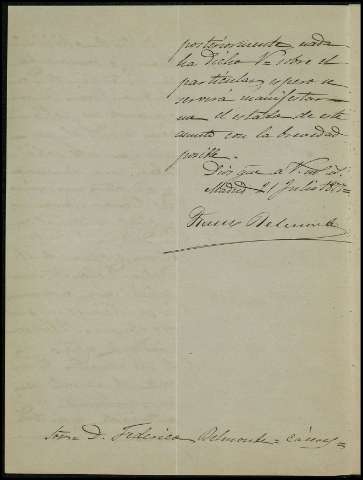 posteriormente nada
ha dicho V. sobre el
particular, espero se
servirá manifestar=
me el estado de este
asunto con la brevedad
posible.
Dios gue a V. m. a.
Madrid 21 Julio 187
Belmonte
Sor. D. Federico Belmonte = Cáceres =